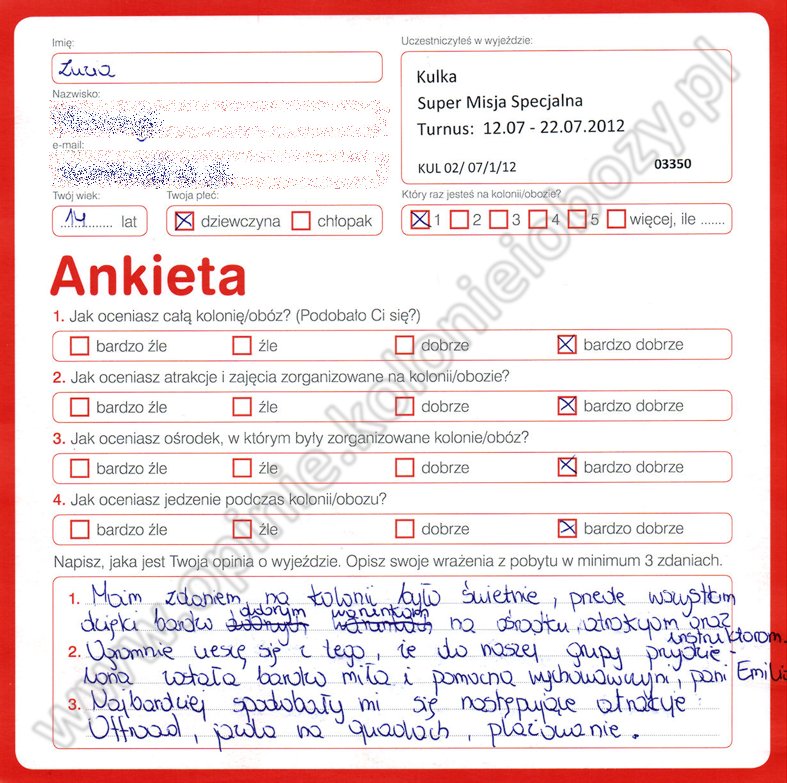 Imię:
Zuzia
Nazwisko:
e-mail:
Twój wiek:
14 lat
Twoja płeć:
dziewczyna chłopak
Uczestniczyłeś w wyjeździe:
Kulka
Super Misja Specjalna
Turnus: 12.07 - 22.07.2012
KUL 02/ 07/1/12 03350
Który raz jesteś na kolonii/obozie?
1 2 3 4 5 więcej, ile .......
Ankieta
1. Jak oceniasz całą kolonię/obóz? (Podobało Ci się?)
bardzo źle źle dobrze bardzo dobrze
2. Jak oceniasz atrakcje i zajęcia zorganizowane na kolonii/obozie?
bardzo źle źle dobrze bardzo dobrze
3. Jak oceniasz ośrodek, w którym były zorganizowane kolonie/obóz?
bardzo źle źle dobrze bardzo dobrze
4. Jak oceniasz jedzenie podczas kolonii/obozu?
bardzo źle źle dobrze bardzo dobrze
Napisz, jaka jest Twoja opinia o wyjeździe. Opisz swoje wrażenia z pobytu w minimum 3 zdaniach.
1. Moim zdaniem, na kolonii było świetnie, przede wszystkim
dobrym warunkom
dzięki bardzo dobrych warunkach na ośrodku, atrakcjom oraz
instruktorom.
2. Ogromnie cieszę się z tego, że do naszej grupy przydzie-
lona została bardzo miła i pomocna wychowawczyni, pani Emilia
3. Najbardziej spodobały mi się następujące atrakcje:
Offroad, jazda na quadach, plażowanie.
www.opinie.kolonieiobozy.pl